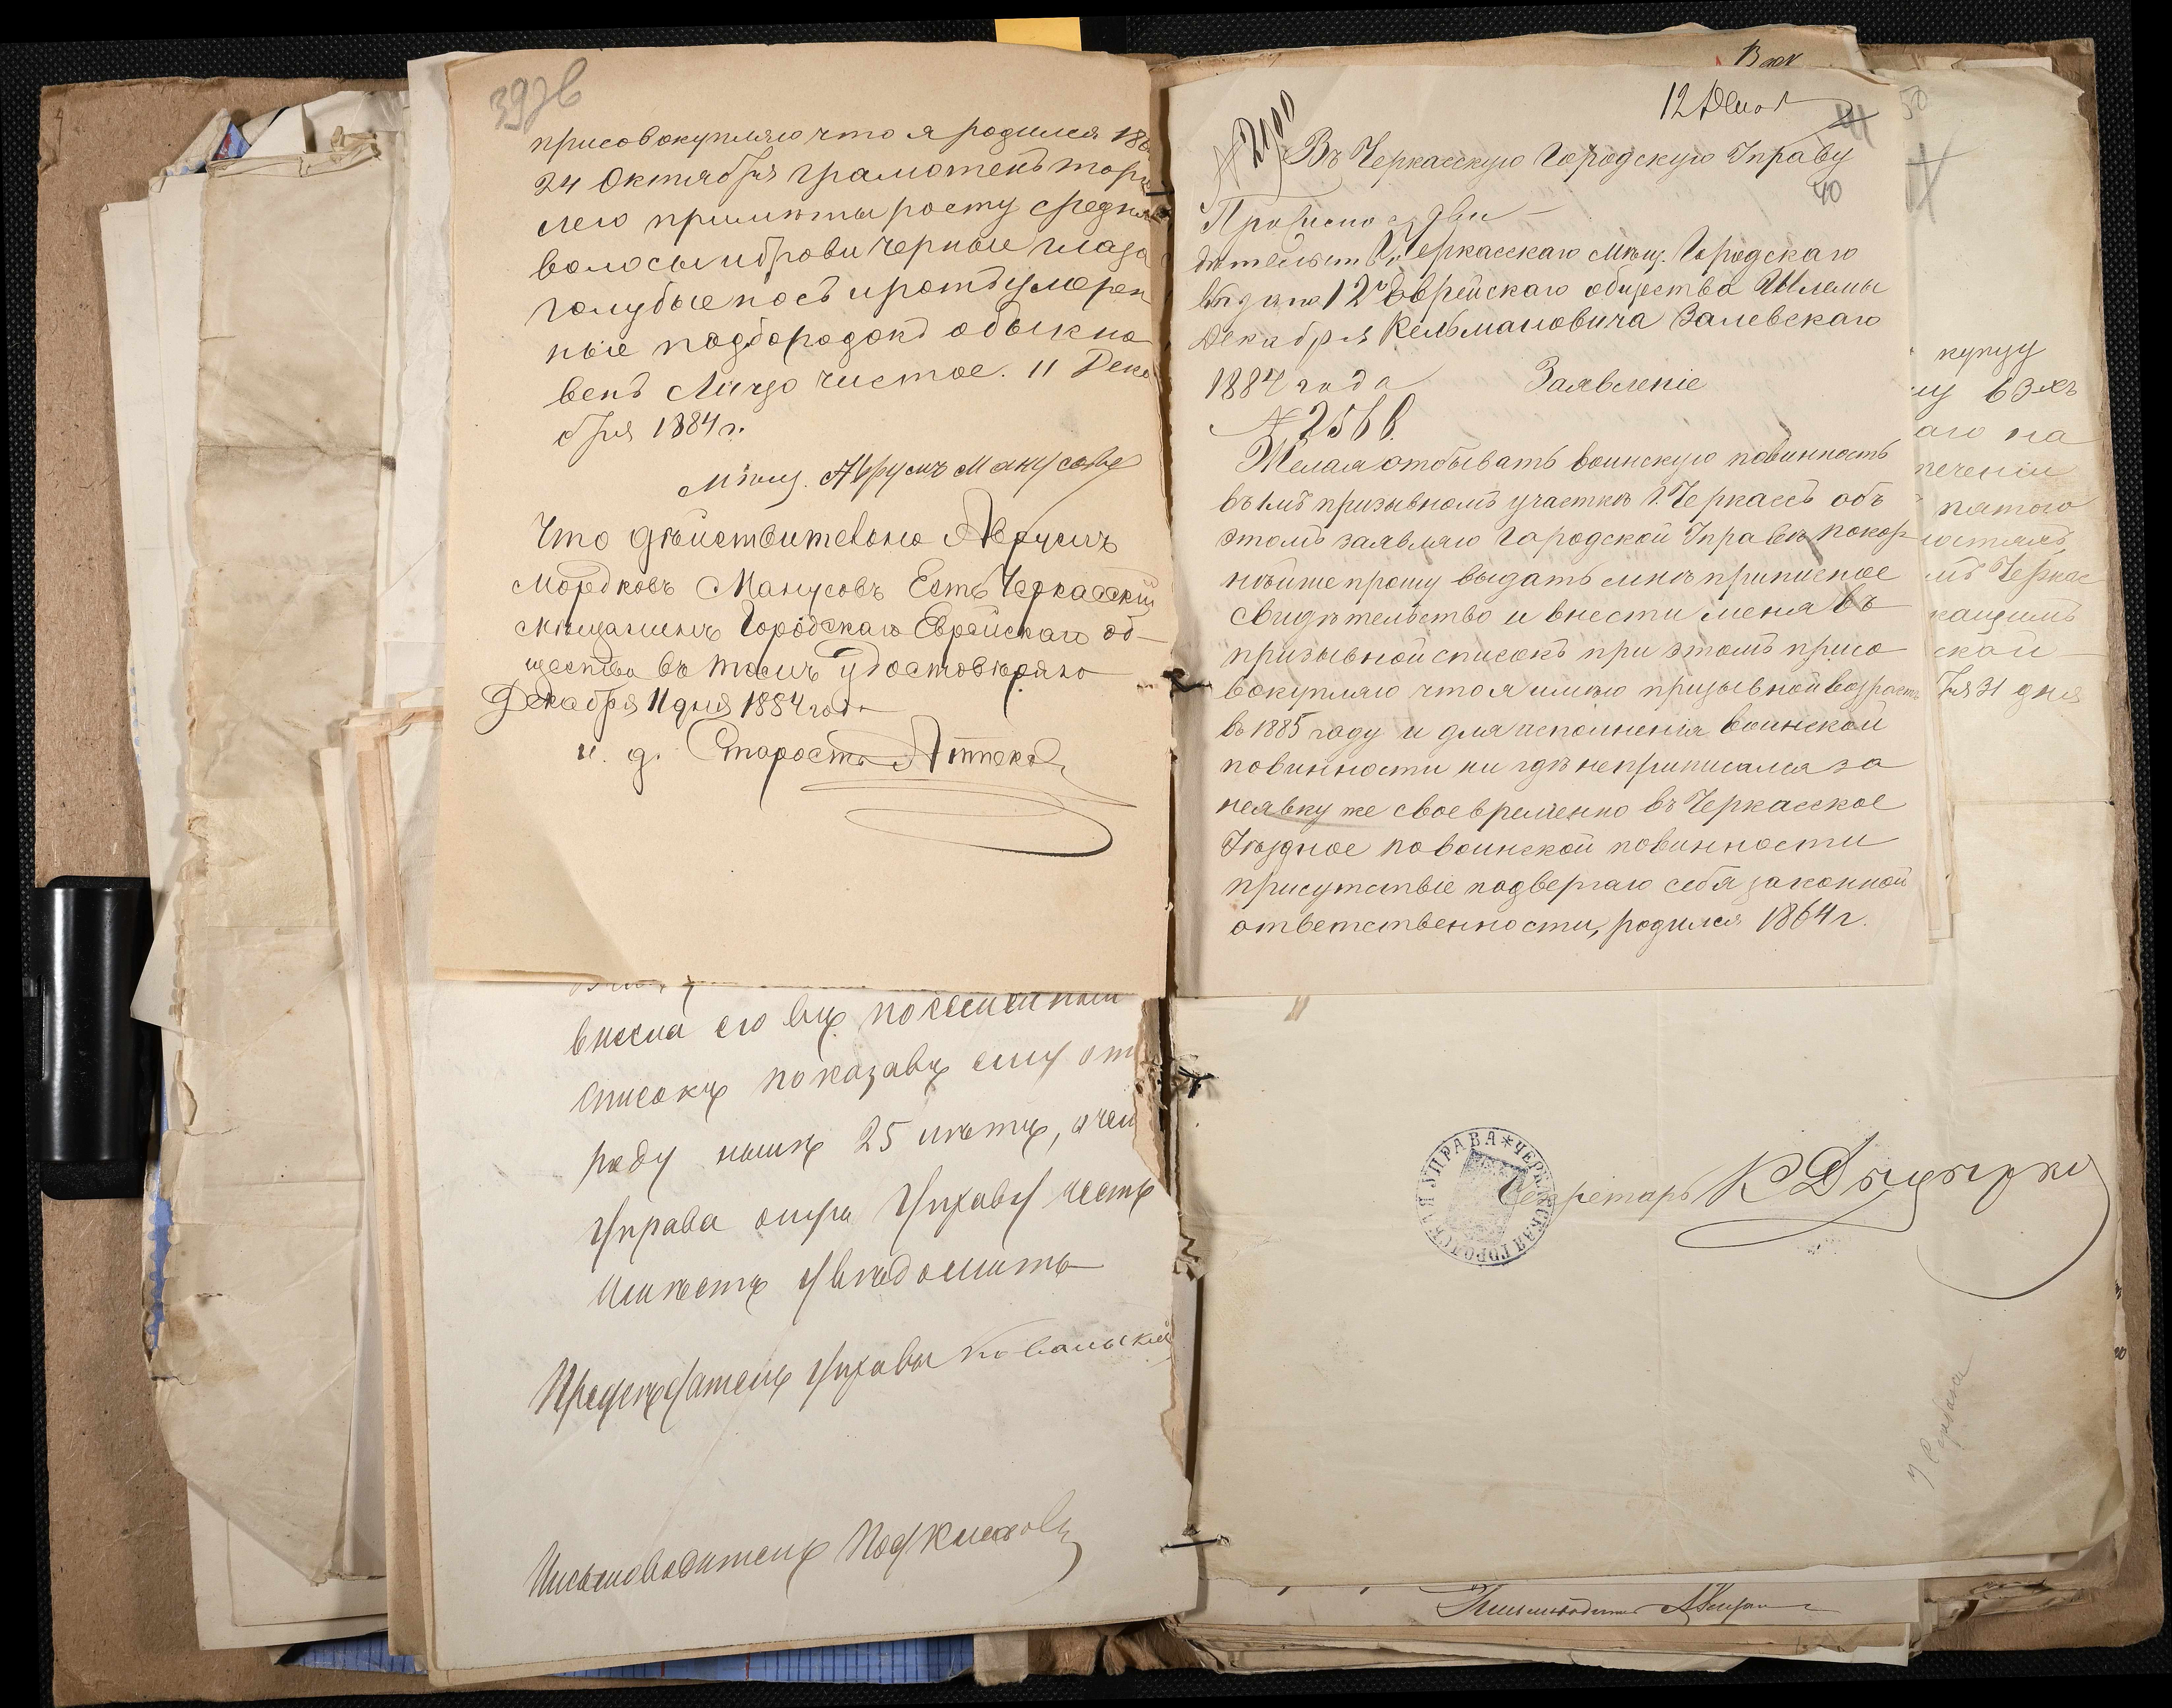 39 об
присовокупляю что я родился 186
24 Октября грамотенъ торгу
лею примѣты росту средня
волосы и брови черные глаза
голубые носъ и ротъ умерен
ные подбородокъ обыкно
венъ Лицо чистое. 11 Дека
бря 1884 г.
Мѣщ. Аврумъ Манусовъ
Что дѣйствительно Аврумъ
Мордковъ Манусовъ Есть Черкасскій
мѣщанинъ Городскаго Еврейскаго об-
щества въ томъ удостовѣряю
Декабря 11 дня 1884 года
и. д. Старосты Аптекарь
внесла его въ посемейный
списокъ показавъ ему отъ
роду нынѣ 25 лѣтъ, о чем
Управа оную Управу честь
имѣетъ увѣдомить
Предсѣдатель Управы
Письмоводитель
12 Декаб
41
№ 2900
Въ Черкасскую Городскую Управу
40
Приписное сви
дѣтельство
выдано 12
Декабря
1884 года
№ 2566.
Черкасскаго мѣщ. Городскаго
Еврейскаго общества Шлемы
Кельмановича Залевскаго
Заявленіе
Желая отбывать воинскую повинность
въ 1мъ призывномъ участкѣ г. Черкассъ объ
этомъ заявляю Городской Управѣ покор-
нѣйше прошу выдать мнѣ приписное
свидѣтельство и внести меня въ
призывной списокъ при этомъ присо
вокупляю что я имѣю призывной возрастъ
въ 1885 году и для исполненія воинской
повинности ни гдѣ не приписался за
неявку же своевременно въ Черкасское
Уѣздное по воинской повинности
присутствіе подвергаю себя законной
ответственности, родился 1864 г.
50
купцу
му 63-хъ
аго на
печеніи
пятого
мъ Черкас
кащимъ
ской
ля 31 дня
ЧЕРКАССКАЯ ГОРОДСКАЯ УПРАВА
Секретарь
Письмоводитель